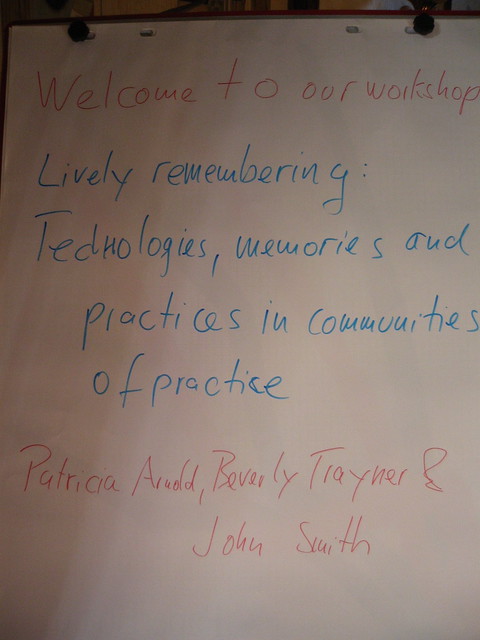 Welcome to our workshop
Lively remembering:
Technologies, memories and
practices in communities
of practise
Patricia Arnold, Beverly Trayner &
John Smith